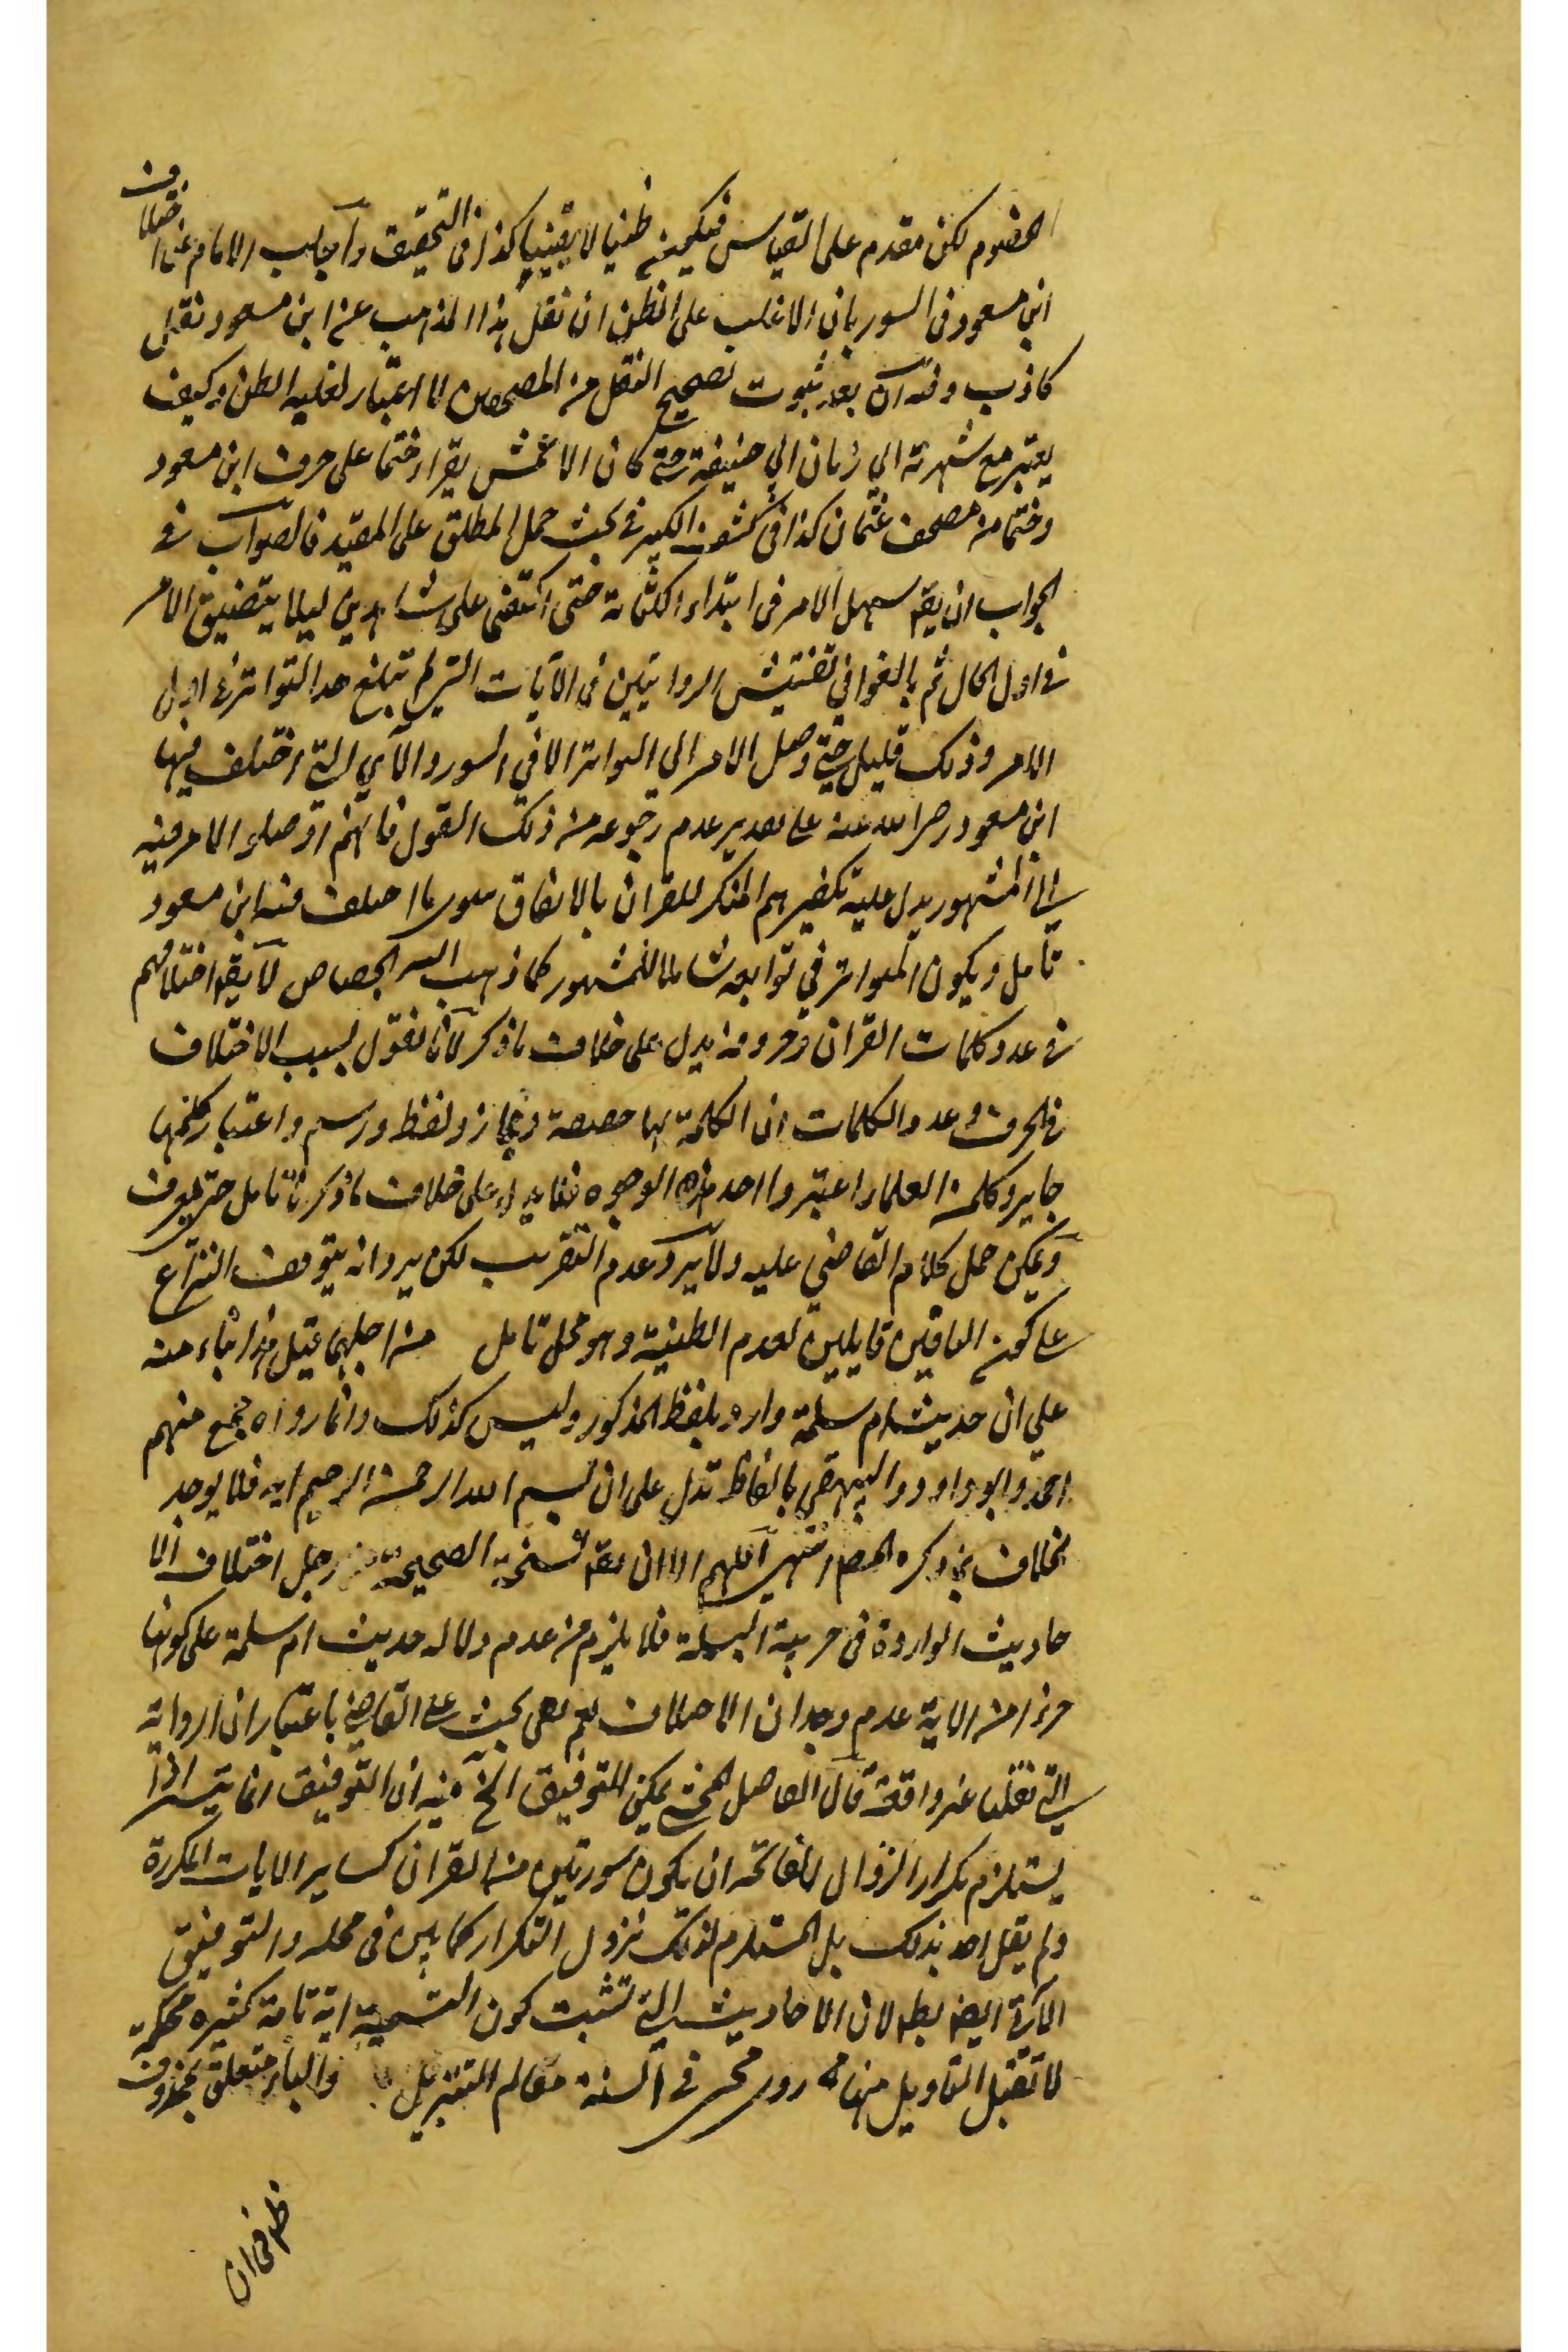 الخصوم لكن مقدم على القياس فيكون ظنيا لا يقينيا كذا فى التحقيق وأجاب الامام عن اختلاف
ابن مسعود فى السور بان الاغلب على الظن ان نقل هذا المذهب عن ابن مسعود نقل
كاذب وفيه ان بعد ثبوت تصحيح النقل من المصححين لا اعتبار لغلبة الظن وكيف
يعتبر مع شهرته الي زمان ابي حنيفة حتى كان الاعمش يقرا ختما على حرف ابن مسعود
وختما من مصحف عثمان كذا فى كشف الكبير فى بحث حمل المطلق على المقيد فالصواب فى
الجواب ان يقم سهل الامر فى ابتداء الكتابة حتى اكتفى على شاهدين ليلا يتضيق الامر
فى اول الحال ثم بالغوا فى تفتيش الروايتين فى الآيات التي لم تبلغ حد التواتر فى اول
الامر وذلك قليل حتى وصل الامر الي التواتر الا في السور والآي التي اختلف فيها
ابن مسعود رضي الله عنه على تقدير عدم رجوعه من ذلك القول فانهم اوصلوا الامر فيه
الى المشهور يدل عليه تكفيرهم المنكر للقران بالاتفاق سوى ما اختلف فيه ابن مسعود
تأمل ويكون المتواتر في توابعه شاملا للمشهور كما ذهب اليه الجصاص لا يقم اختلافهم
فى عدد كلمات القران وحروفه يدل على خلاف ما ذكر لانا نقول لسبب الاختلاف
فى الحرف وعدد الكلمات ان الكلمة لها حقيقة ومجاز ولفظ ورسم واعتبار كلمنها
جايز وكل من العلماء اعتبروا احد هذه الوجوه فلا يدل على خلاف ما ذكرنا تامل حتى تعرف
ويمكن حمل كلام القاضي عليه ولا يرد عدم التقريب لكن يرد انه يتوقف النزاع
على كون النافين قايلين لعدم الظنية وهو محل تامل من اجلهما قيل هذا بناء منه
علي ان حديث ام سلمة وارد بلفظ المذكور وليس كذلك وانما رواه جمع منهم
احمد وابو داود والبيهقي بالفاظ تدل على ان بسم الله الرحمن الرحيم ايه فلا يوجد
بخلاف ما ذكره المص انتهى اللهم الا ان يقم نسخته الصحيحة من اجل اختلاف الا
حاديث الواردة فى جزئية البسملة فلا يلزم من عدم دلالة حديث ام سلمة على كونها
جزءا من الاية عدم وجدان الاختلاف نعم بقي بحث على القاضي باعتبار ان الرواية
التي نقلها غير واقعة قال الفاضل المحشي يمكن التوفيق الخ فيه ان التوفيق انما يتم اذا
يستلزم تكرار النزول للفاتحة ان يكون سورتين من القران كساير الايات المكررة
ولم يقل احد بذلك بل المستلزم لذلك نزول التكرار كما بين فى محله والتوفيق
الآتي ايضا بط لان الاحاديث التي تثبت كون التسمية اية تامة كثيرة محكمة
لا تقبل التاويل منها ما روى محيى السنة معالم التنزيل والباء متعلق بمحذوف